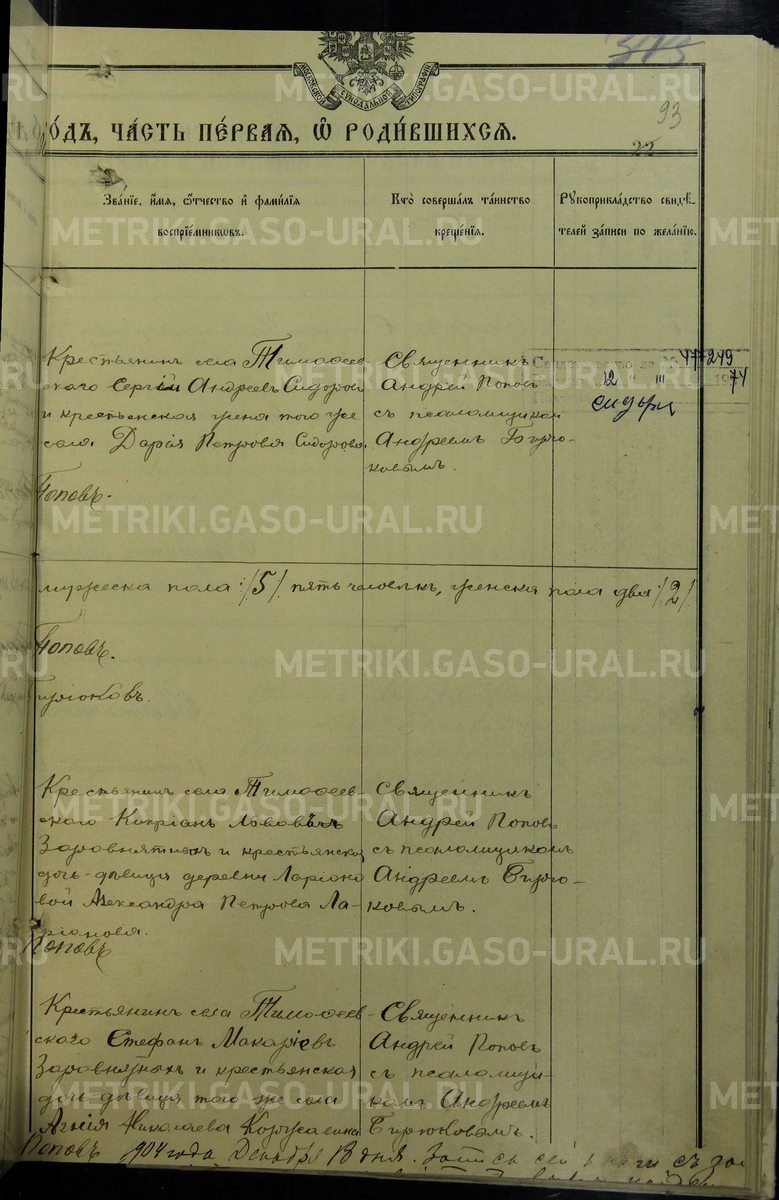 МОСКОВСКОЙ СѴНОДАЛЬНОЙ ТИПОГРАФІИ
93
ГОДЪ, ЧАСТЬ ПЕРВАЯ, Ѡ РОДИВШИХСЯ.
Званіе, имя, отчество и фамилія
воспріемниковъ.
Кто совершалъ таинство
крещенія.
Рукоприкладство свидѣ-
телей записи по желанію.
Крестьянинъ села Тимофеев
скаго Сергій Андреевъ Сидоров
и крестьянская жена того же
села Дарія Петрова Сидорова
Поповъ.
Священникъ
Андрей Поповъ
съ псаломщиком
Андреемъ Бирю-
ковымъ.
249
12 III 1974
мужеска пола :/5/. пять человѣкъ, женска пола два /2/.
Поповъ.
Бирюковъ.
Крестьянинъ села Тимофеев-
скаго Кипріанъ Львовичъ
Заровнятныхъ и крестьянская
дочь-дѣвица деревни Ларіоно
вой Александра Петрова Ла-
ріонова.
Поповъ
Священникъ
Андрей Поповъ
съ псаломщикомъ
Андреемъ Бирю-
ковымъ.
Крестьянинъ села Тимофеев-
скаго Стефанъ Макаріевъ
Заровнятныхъ и крестьянская
дочь-дѣвица того же села
Агнія Николаева
Священникъ
Андрей Поповъ
съ псаломщи-
комъ Андреемъ
Бирюковымъ.
Поповъ 1904 года Декабря 18 дня. Запись сей книги съ
METRIKI.GASO-URAL.RU